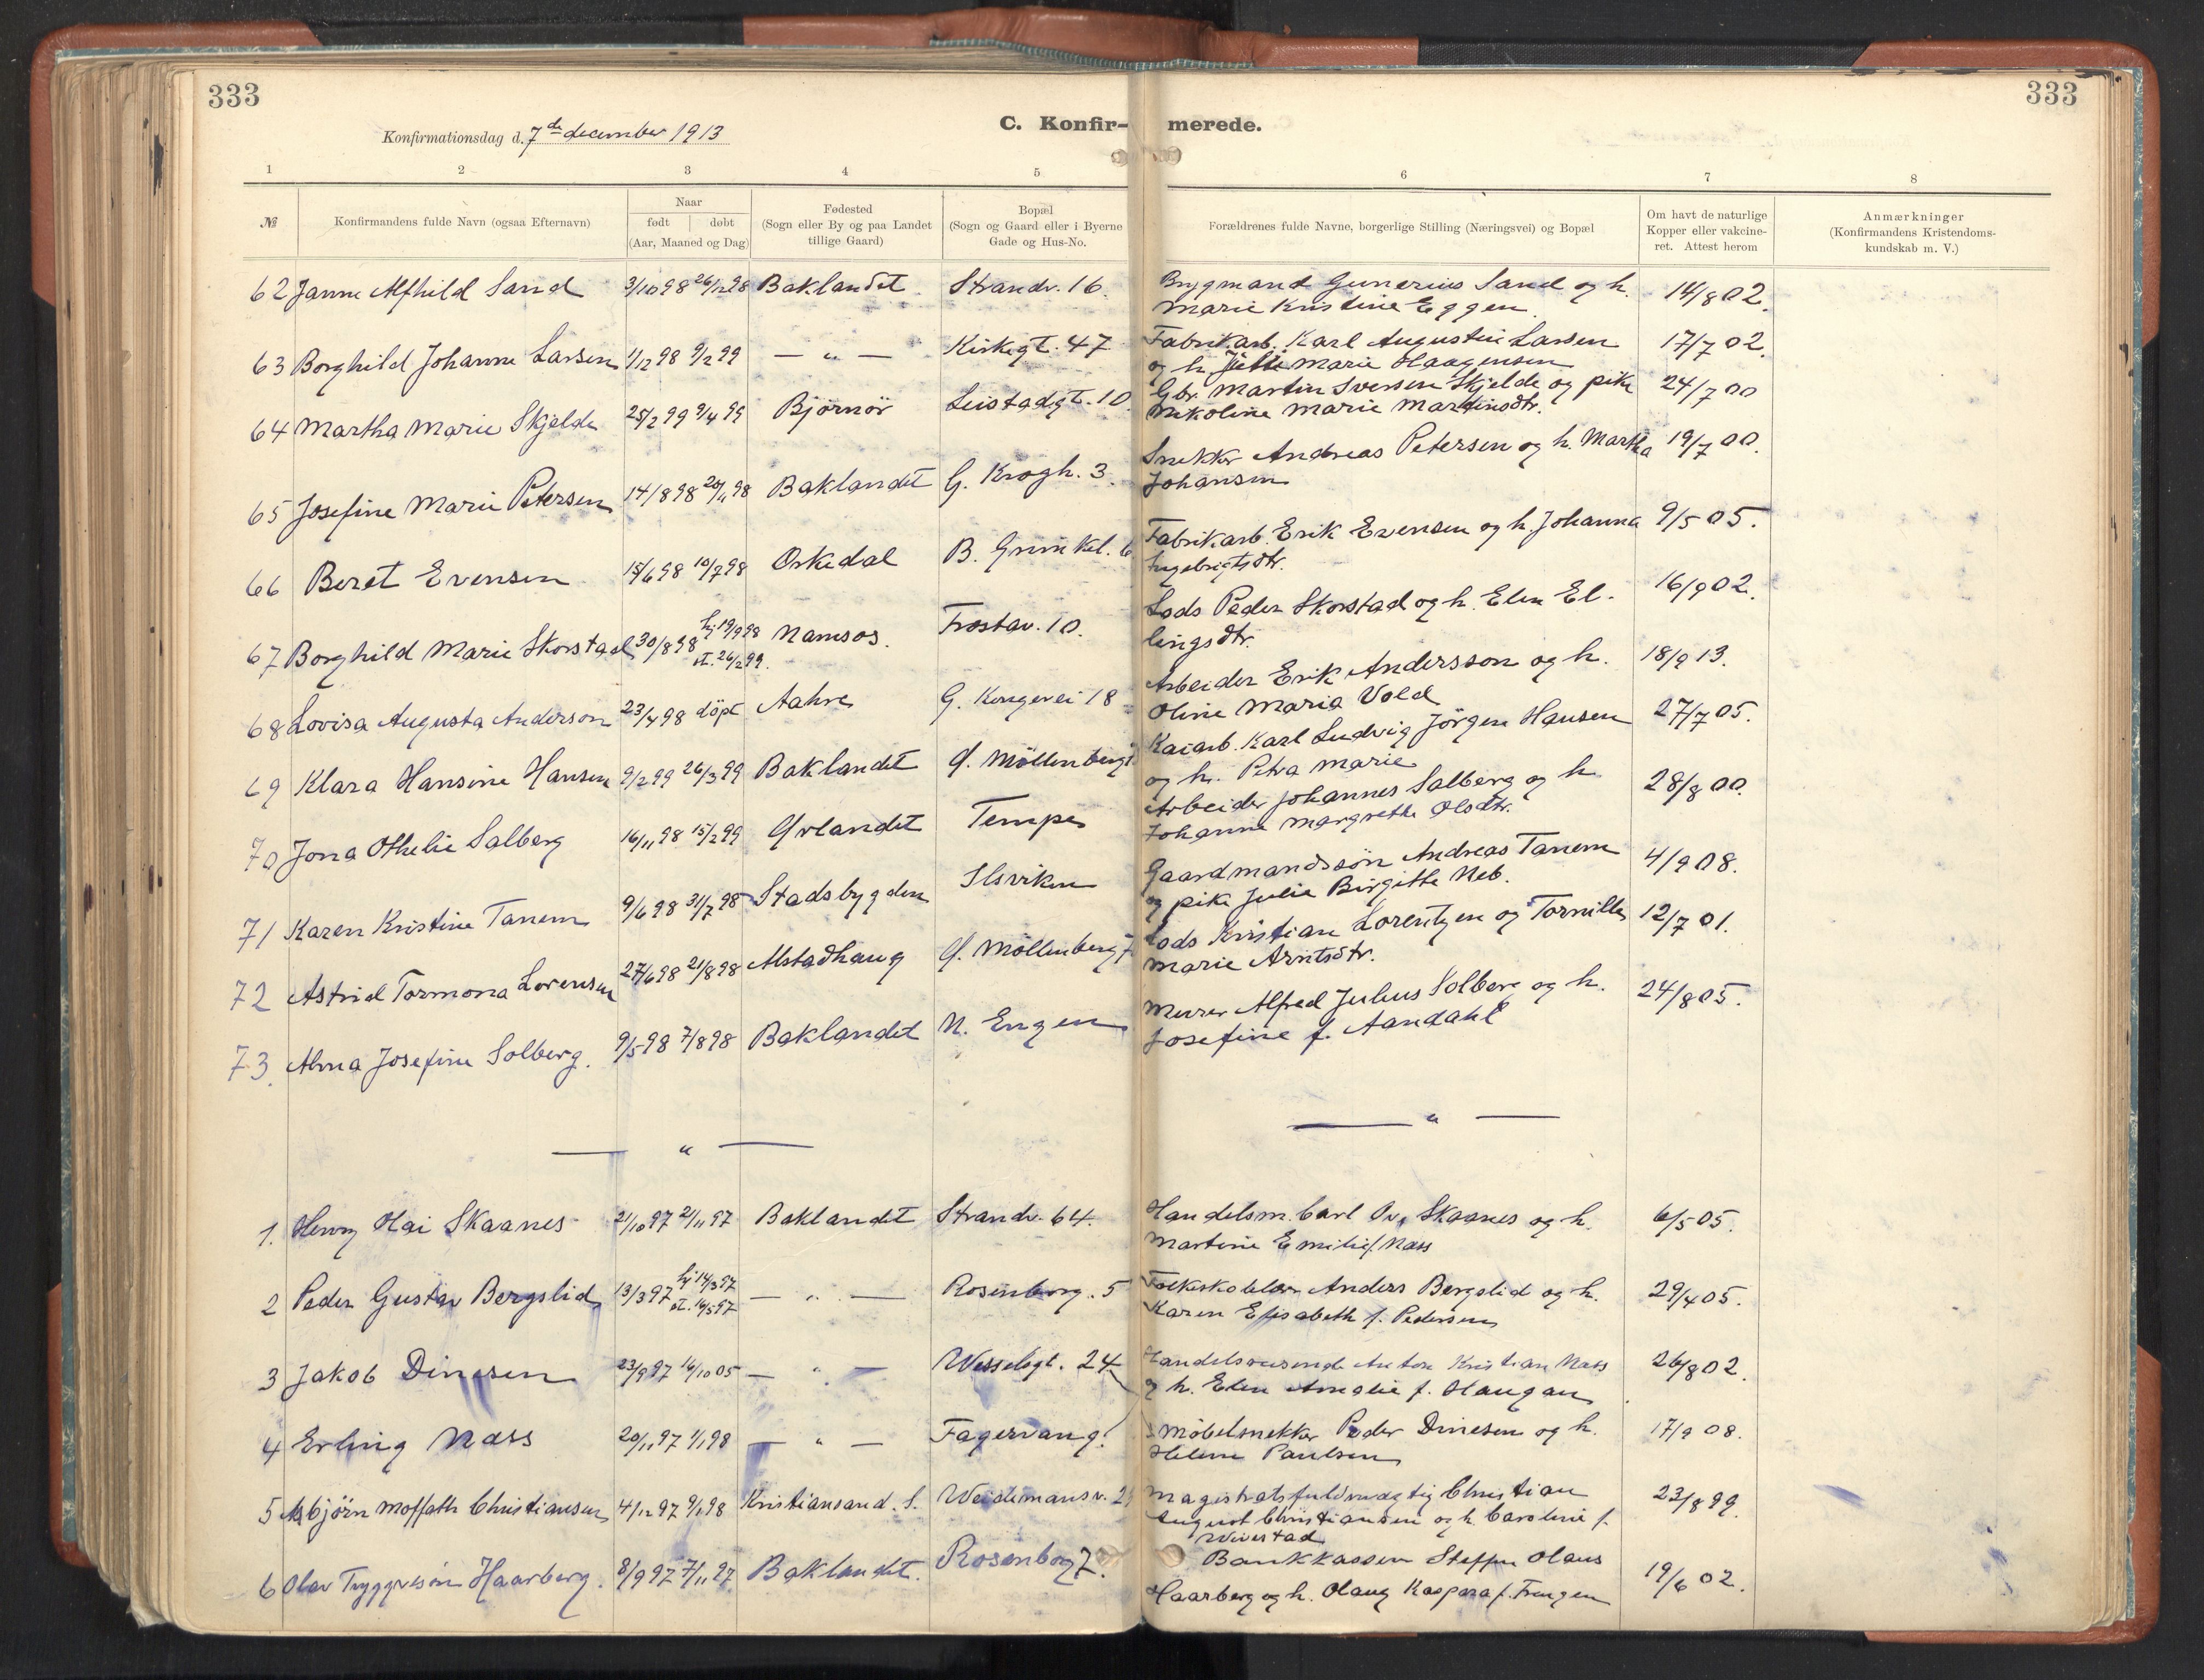 333
333
C. Konfir- merede.
Konfirmationsdag d. 7de december 1913
1 2 3 4 5 6 7 8
№ Konfirmandens fulde Navn (ogsaa Efternavn)
Naar
født døbt
(Aar, Maaned og Dag)
Fødested
(Sogn eller By og paa Landet
tillige Gaard)
Bopæl
(Sogn og Gaard eller i Byerne
Gade og Hus-No.
Forældrenes fulde Navne, borgerlige Stilling (Næringsvei) og Bopæl
Om havt de naturlige
Kopper eller vakcine-
ret. Attest herom
Anmærkninger
(Konfirmandens Kristendoms-
kundskab m. V.)
62 Janne Alfhild Sand 3/10 98 26/12 98 Baklandet Strandv. 16. Brygmand Gunerius Sand og h. 14/8 02.
Marie Kristine Eggen.
63 Borghild Johanne Larsen 1/12 98 9/2 99 — " — Kirkegt. 47 Fabrikarb. Karl Augustin Larsen 17/7 02.
og h. Marie Haagensen
64 Martha Marie Skjelde 25/2 99 9/4 99 Björnör Leistadgt. 10. Gbr. Martin Iversen Skjelde og pike 24/7 00
Nikoline Marie Martinsdtr.
65 Josefine Marie Petersen 14/8 98 20/11 98 Baklandet G. Krogh. 3. Snekker Andreas Petersen og h. Martha 19/7 00.
Johansen
66 Beret Evensen 15/6 98 10/7 98 Orkedal B. Grimkel. 6 Fabrikarb. Erik Evensen og h. Johanna 9/5 05.
Ingebrigtsdtr.
67 Borghild Marie Skorstad 30/8 98 hj 19/9 98 Namsos. Frostav. 10. Lods Peder Skorstad og h. Elen El- 16/9 02.
st. 26/2 99. lingsdtr.
68 Lovisa Augusta Anderson 23/4 98 döpt Aahre G. Kongevei 18 Arbeider Erik Andersson og h. 18/9 13.
Oline Maria Vold
69 Klara Hansine Hansen 9/2 99 26/3 99 Baklandet Ø. Möllenberg Kaiarb. Karl Ludvig Jörgen Hansen 27/7 05.
og h. Petra Marie
70 Jona Othelie Salberg 16/11 98 15/2 99 Ørlandet Tempe Arbeider Johannes Salberg og h. 28/8 00.
Johanne Margrethe Olsdtr.
71 Karen Kristine Tanem 9/6 98 31/7 98 Stadsbygden Ilsviken Gaardmandssön Andreas Tanem 4/9 08.
og pike Julie Birgitte Neb.
72 Astrid Tormona Lorensen 27/6 98 21/8 98 Alstadhaug Ø. Möllenberg 7 Lods Kristian Lorentzen og Tornille 12/7 01.
Marie Arntsdtr.
73. Alma Josefine Solberg. 9/5 98 7/8 98 Baklandet N. Engen Murer Alfred Julius Solberg og h. 24/8 05.
Josefine f. Aandahl
— " — — " —
1. Henry Hai Skaanes 21/10 97 21/11 97 Baklandet Strandv. 64. Handelsm. Carl Skaanes og h. 6/5 05.
Martine Emilie f. Næss
2 Peder Gustav Bergslid 13/3 97 hj 14/3 97 — " — Rosenborg. 5 Folkeskolelær. Anders Bergslid og h. 29/4 05.
st. 16/5 97 Karen Elisabeth f. Pedersen
3 Jakob Dinesen 23/9 97 16/10 05 — " — Wesselsgt. 24 Handelsreisende Anton Kristian Næss 26/8 02.
og h. Elen Amalie f. Haugan
4 Erling Næss 20/11 97 1/1 98 — " — Fagervang. Möbelsnekker Peder Dinesen og h. 17/9 08.
Helene Paulsen
5 Asbjörn Moffath Christiansen 4/12 97 9/1 98 Kristiansand. S. Weidemansv. 2 Magistratsfuldmægtig Christian 23/8 99.
August Christiansen og h. Caroline f.
Wivestad
6 Olav Tryggvesön Haarberg. 8/9 97 7/11 97 Baklandet. Rosenborg 7. Bankkasser Steffen Olaus 19/6 02.
Haarberg og h. Olaug Kaspara f. Trangen